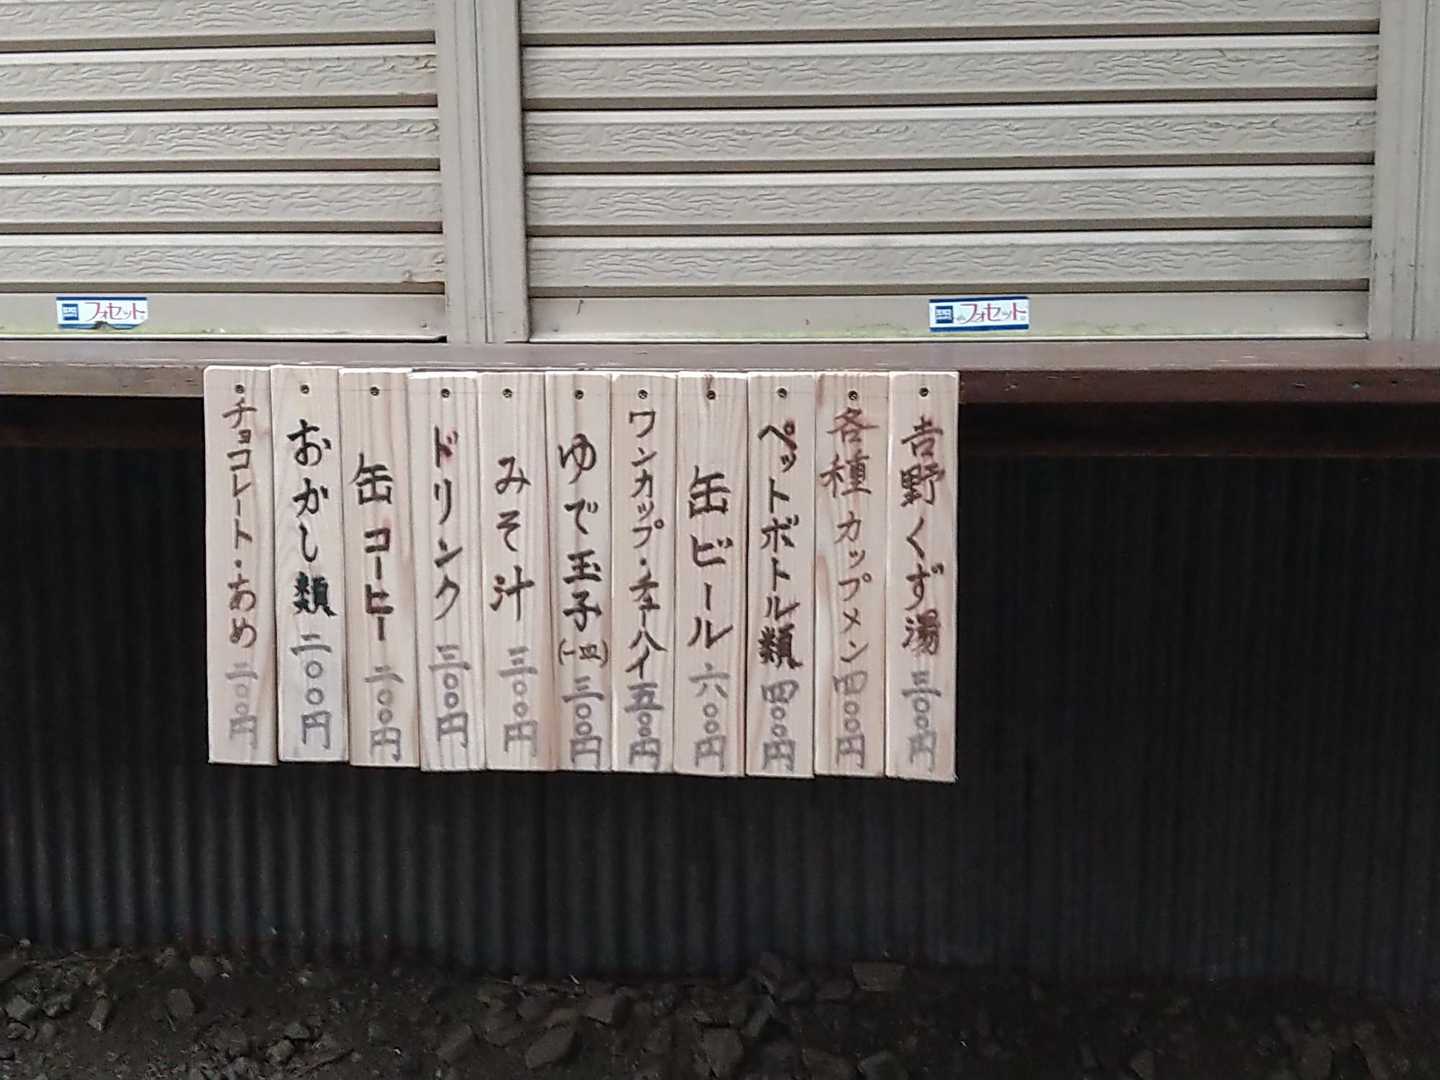 フォセット
フォセット
吉野くず湯 三〇〇円
各種カップメン 四〇〇円
ペットボトル類 四〇〇円
缶ビール 六〇〇円
ワンカップ・チューハイ 五〇〇円
ゆで玉子(一皿) 三〇〇円
みそ汁 三〇〇円
ドリンク 三〇〇円
缶コーヒー 二〇〇円
おかし類 二〇〇円
チョコレート・あめ 二〇〇円